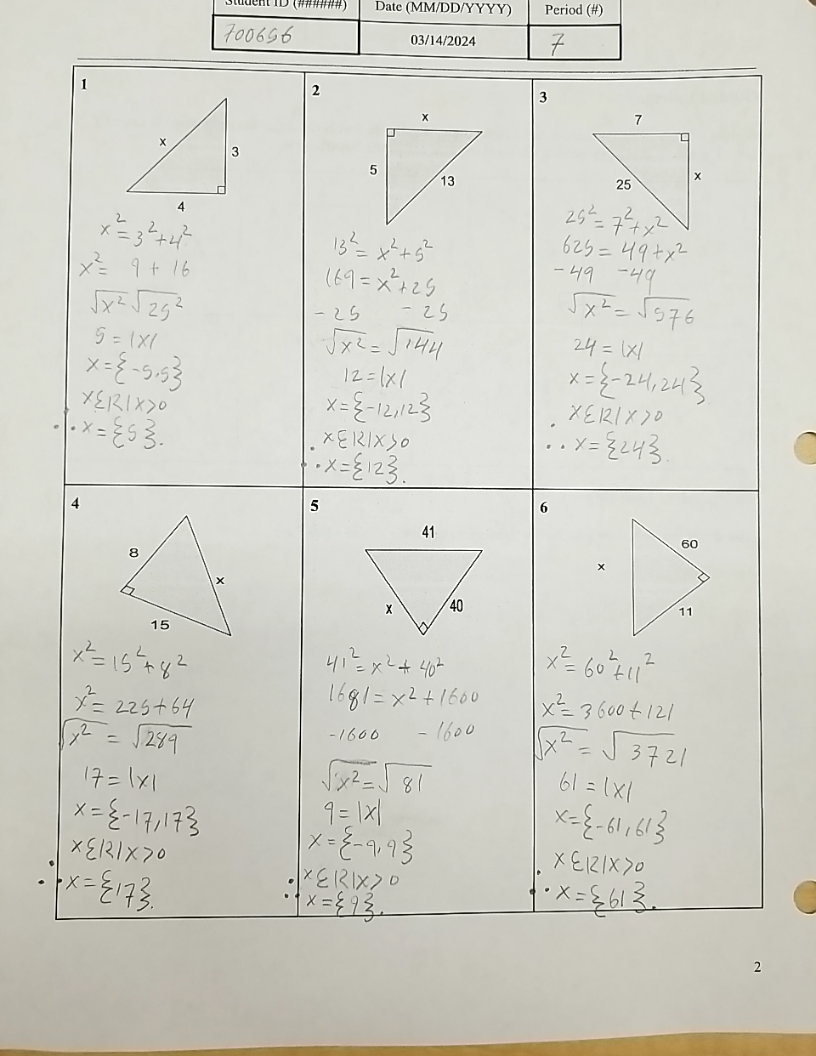 Student ID (######) Date (MM/DD/YYYY) Period (#)
700656 03/14/2024 7
1
x
3
4
x²=3²+4²
x²= 9 + 16
√x² √25²
5 = |x|
x={-5,5}
xεℝ|x>0
∴x={5}.
2
x
5
13
13²= x²+5²
169=x²+25
-25 -25
√x² = √144
12=|x|
x={-12,12}
xεℝ|x>0
∴x={12}.
3
7
25
x
25²=7²+x²
625=49+x²
-49 -49
√x² = √576
24 = |x|
x={-24,24}
xεℝ|x>0
∴ x={24}.
4
8
x
15
x²=15²+8²
x²= 225+64
√x² = √289
17=|x|
x={-17,17}
xεℝ|x>0
∴x={17}.
5
41
x
40
41²=x²+40²
1681=x²+1600
-1600 -1600
√x²=√81
9=|x|
x={-9,9}
xεℝ|x>0
∴ x={9}.
6
60
x
11
x²=60²+11²
x²=3600+121
√x² = √3721
61=|x|
x={-61,61}
xεℝ|x>0
∴ x={61}.
2